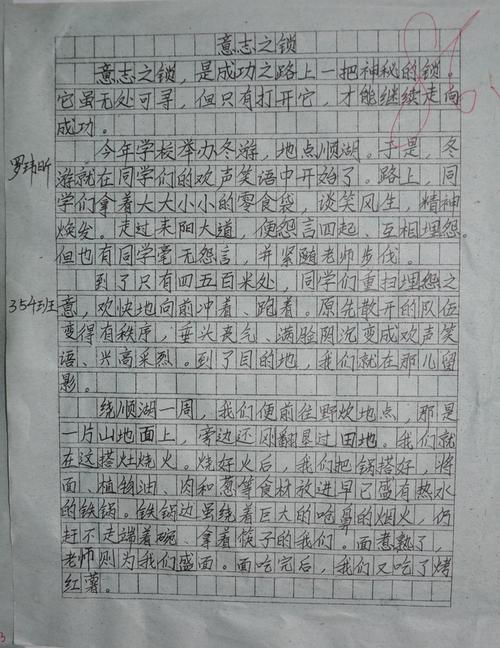 意志之锁
意志之锁，是成功之路上一把神秘的锁。
它虽无处可寻，但只有打开它，才能继续走向
成功。
今年学校举办冬游，地点顺湖。于是，冬
游就在同学们的欢声笑语中开始了。路上，同
学们拿着大大小小的零食袋，谈笑风生，精神
焕发。走过耒阳大道，便怨言四起、互相埋怨。
但也有同学毫无怨言，并紧随老师步伐。
到了只有四五百米处，同学们重扫埋怨之
意，欢快地向前冲着、跑着。原先散开的队伍
变得有秩序，垂头丧气、满脸阴沉变成欢声笑
语、兴高采烈。到了目的地，我们就在那儿留
影。
绕顺湖一周，我们便前往野炊地点，那是
一片山地面上，旁边还刚翻垦过田地。我们就
在这搭灶烧火。烧好火后，我们把锅搭好，将
面、植物油、肉和葱等食材放进早已盛有热水
的铁锅。铁锅边虽绕着巨大的呛鼻的烟火，仍
赶不走端着碗、拿着筷子的我们。面煮熟了，
老师则为我们盛面。面吃完后，我们又吃了烤
红薯。
罗玮昕
354班
3